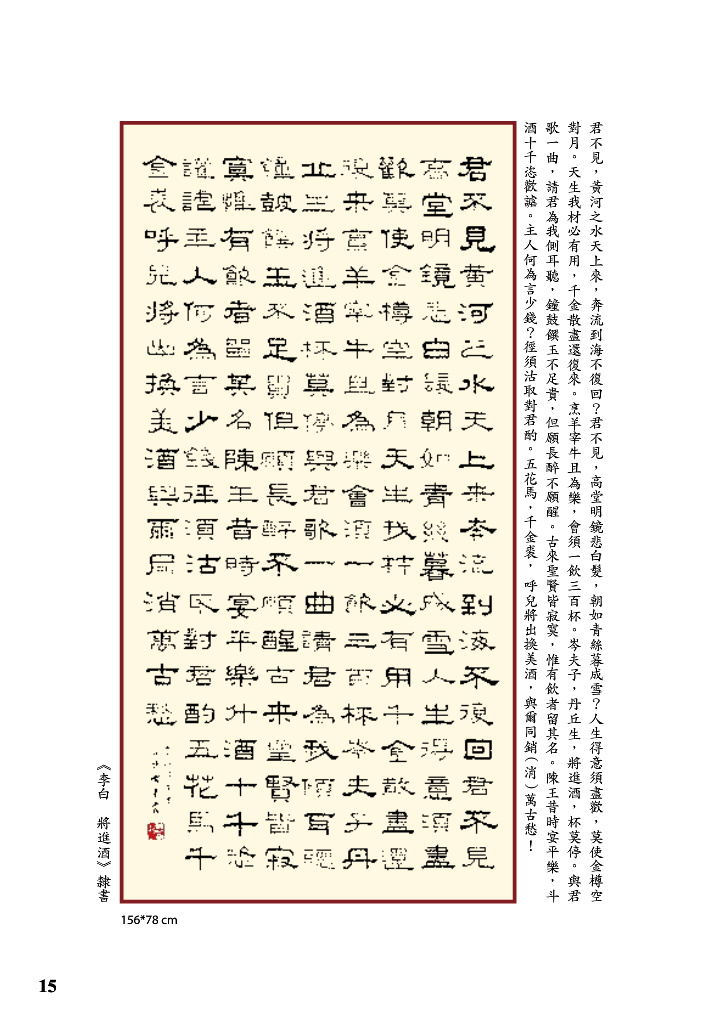 君不見，黃河之水天上來，奔流到海不復回？君不見，高堂明鏡悲白髮，朝如青絲暮成雪？人生得意須盡歡，莫使金樽空
對月。天生我材必有用，千金散盡還復來。烹羊宰牛且為樂，會須一飲三百杯。岑夫子，丹丘生，將進酒，杯莫停。與君
歌一曲，請君為我側耳聽，鐘鼓饌玉不足貴，但願長醉不願醒。古來聖賢皆寂寞，惟有飲者留其名。陳王昔時宴平樂，斗
酒十千恣歡謔。主人何為言少錢？徑須沽取對君酌。五花馬，千金裘，呼兒將出換美酒，與爾同銷（消）萬古愁！
君不見黃河之水天上来奔流到海不復回君不見
高堂明鏡悲白髮朝如青絲暮成雪人生得意須盡
歡莫使金樽空對月天生我材必有用千金散盡還
復来烹羊宰牛且為樂會須一飲三百杯岑夫子丹
丘生将進酒杯莫停與君歌一曲請君為我傾耳聽
鐘鼓饌玉不足貴但願長醉不願醒古来聖賢皆寂
寞惟有飲者留其名陳王昔時宴平樂什酒十千恣
讙謔主人何為言少錢徑須沽取對君酌五花馬千
金裘呼兒将出換美酒與爾同消萬古愁
《李白　將進酒》隸書
156*78 cm
15